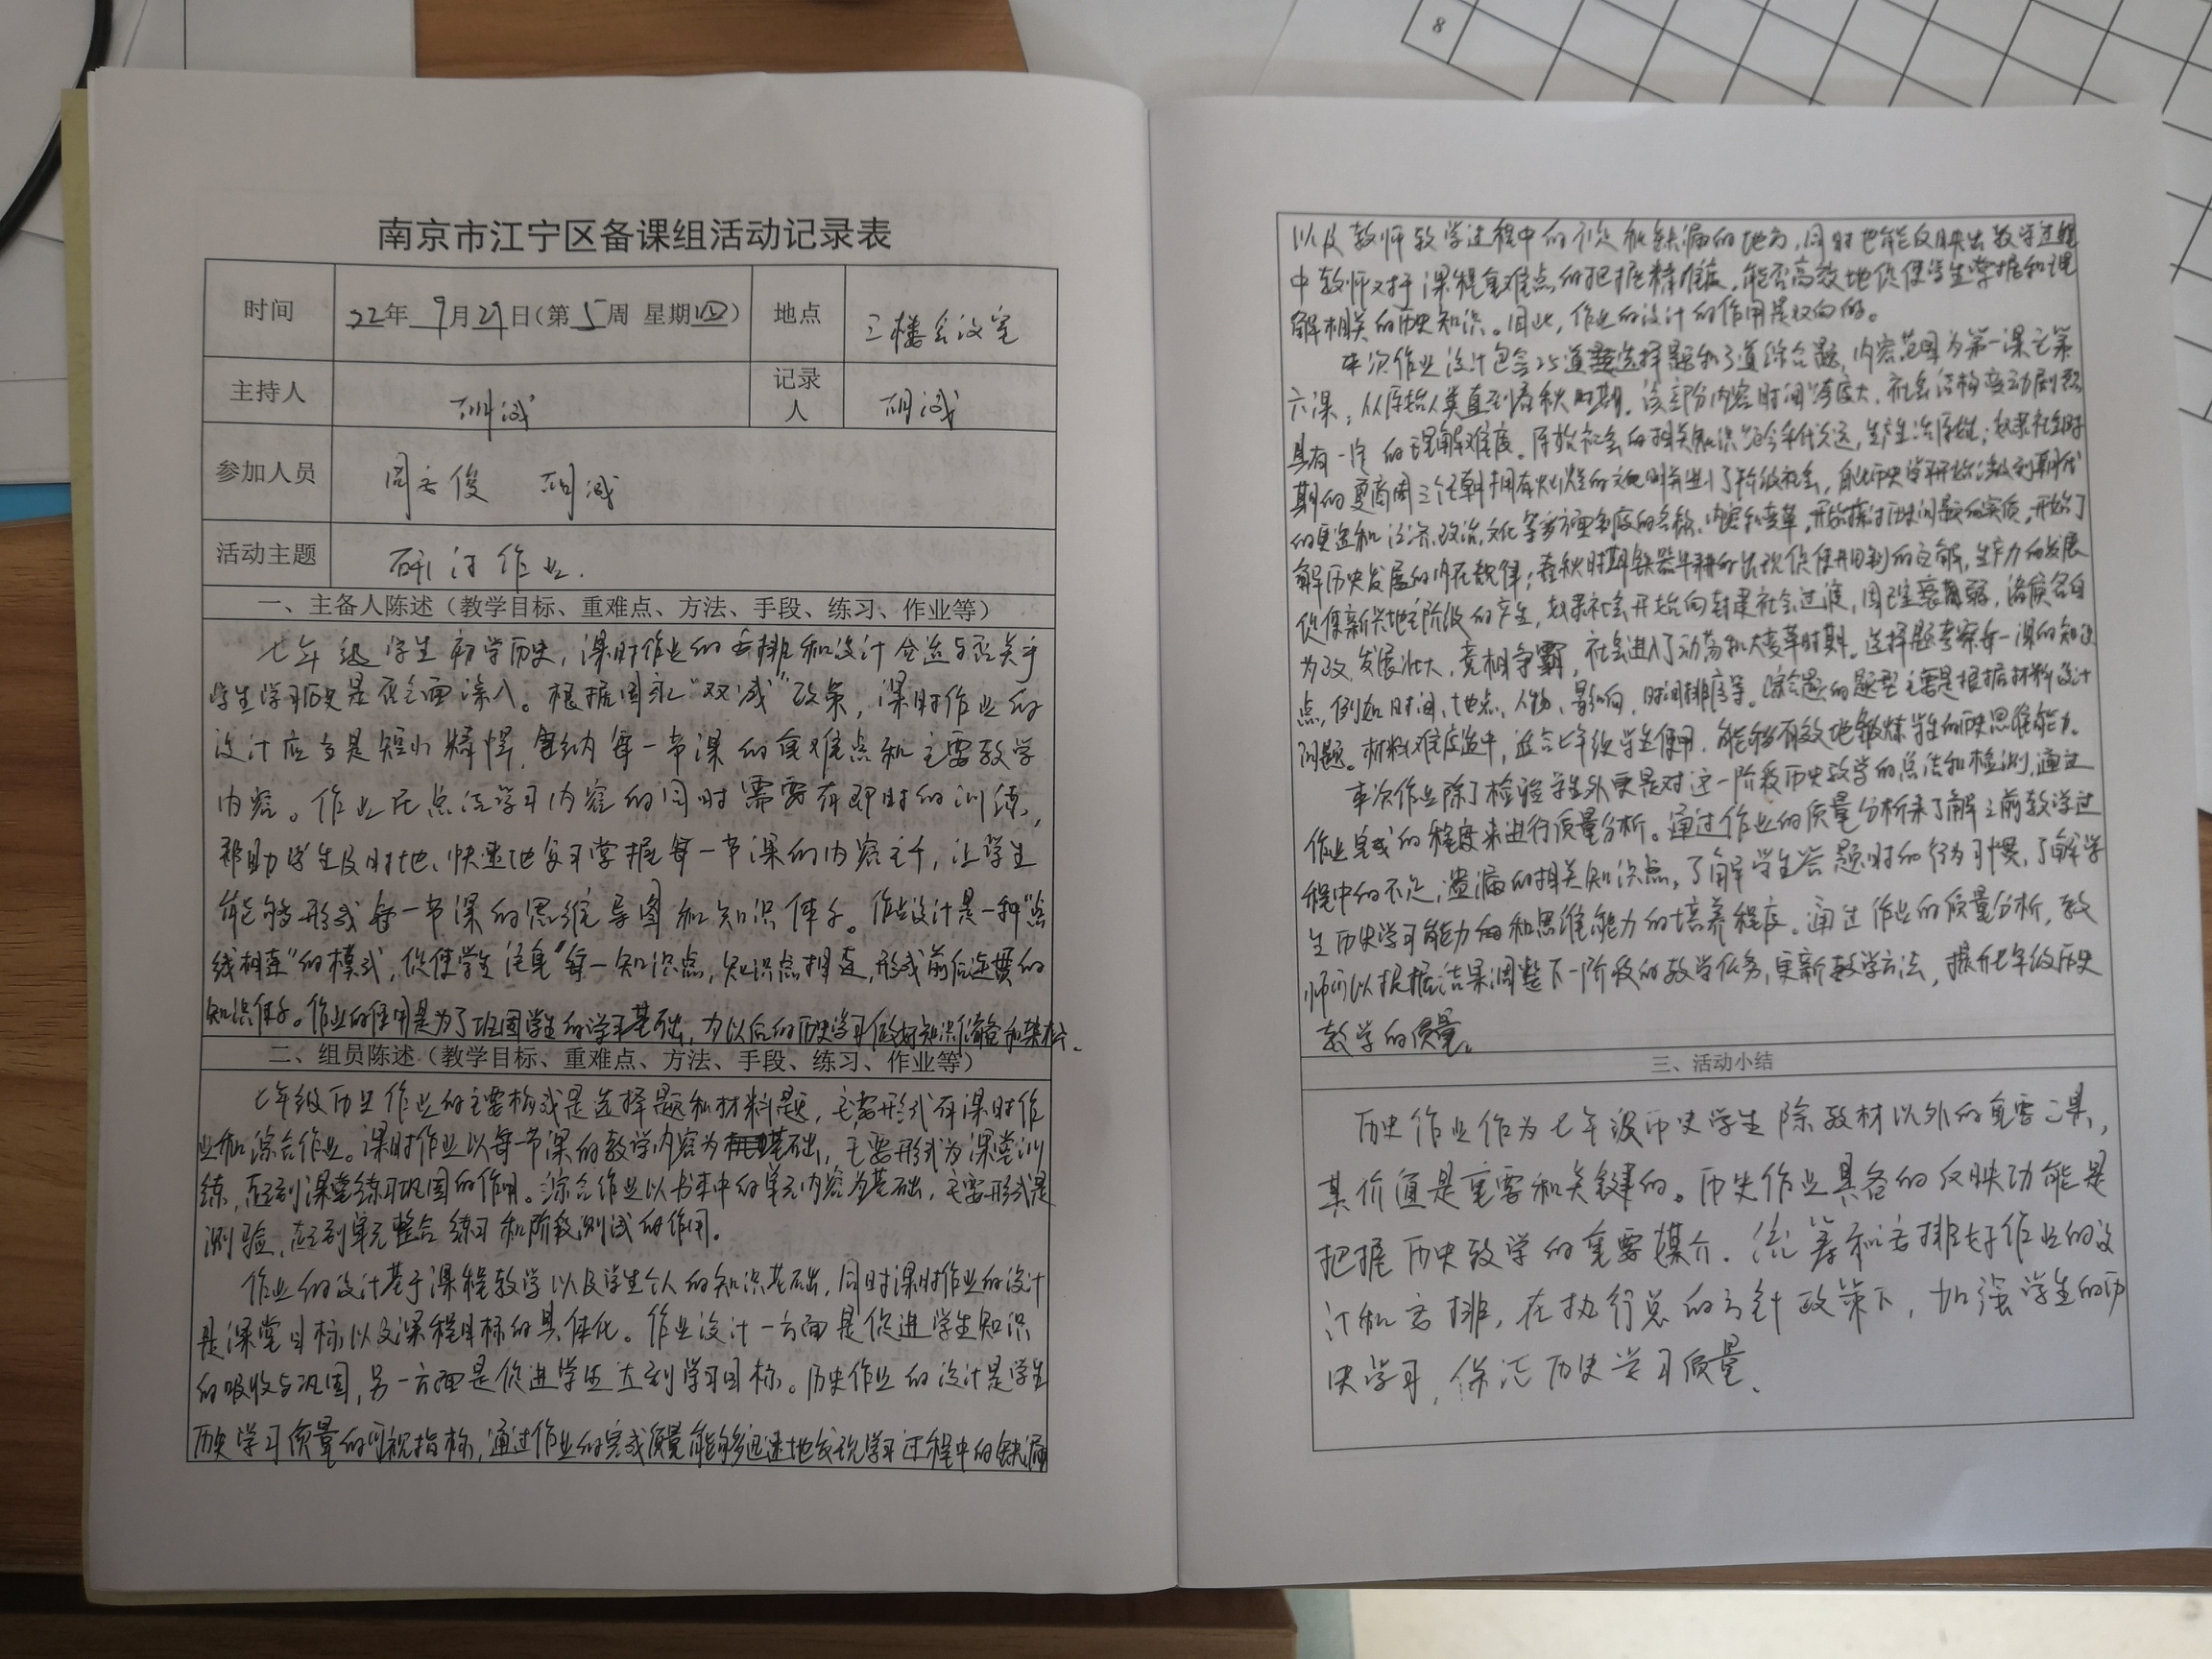 南京市江宁区备课组活动记录表
时间 22年 9月29日(第5周 星期四) 地点 三楼会议室
主持人 胡诚 记录人 胡诚
参加人员 周 俊 胡诚
活动主题 研讨作业.
一、主备人陈述（教学目标、重难点、方法、手段、练习、作业等）
七年级学生初学历史，课时作业的安排和设计合适与否关乎
学生学习历史是否全面深入。根据国家“双减”政策，课时作业的
设计应当是短小精悍，包纳每一节课的重难点和主要教学
内容。作业在总结学习内容的同时需要有即时的训练，
帮助学生及时地、快速地复习掌握每一节课的内容主干，让学生
能够形成每一节课的思维导图和知识体系。作业设计是一种“点
线相连”的模式，促使学生 每一知识点，知识点相连，形成前后连贯的
知识体系。作业的使用是为了巩固学生的学习基础，为以后的历史学习做好知识储备和 。
二、组员陈述（教学目标、重难点、方法、手段、练习、作业等）
七年级历史作业的主要构成是选择题和材料题，主要形式有课时作
业和综合作业。课时作业以每一节课的教学内容为基础，主要形式为课堂训
练，起到课堂练习巩固的作用。综合作业以书本中的单元内容为基础，主要形式是
测验，起到单元整合练习和阶段测试的作用。
作业的设计基于课程教学以及学生个人的知识基础，同时课时作业的设计
是课堂目标以及课程目标的具体化。作业设计一方面是促进学生知识
的吸收与巩固，另一方面是促进学生达到学习目标。历史作业的设计是学生
历史学习质量的可视指标，通过作业的完成质量能够迅速地发现学习过程中的缺漏
以及教师教学过程中的不足和缺漏的地方，同时也能反映出教学过程
中教师对于课程重难点的把握精准度，能否高效地促使学生掌握和理
解相关的历史知识。因此，作业的设计的作用是双向的。
本次作业设计包含25道选择题和3道综合题，内容范围为第一课之第
六课，从原始人类直到春秋时期，该部分内容时间跨度大，社会结构变动剧烈，
具有一定的理解难度。原始社会的相关知识 今年代久远，生产生活原始；奴隶社会时
期的夏商周三个王朝拥有灿烂的文明并进了阶级社会，自此历史学开始涉及到朝代
的更迭和经济、政治、文化等多方面制度的名称、内容和变革，开始探讨历史问题的实质，开始了
解历史发展的内在规律；春秋时期铁器牛耕的出现促使井田制的瓦解，生产力的发展
促使新兴地主阶级的产生，奴隶社会开始向封建社会过渡，周王室衰弱，诸侯各自
为政，发展壮大，竞相争霸，社会进入了动荡和大变革时期。选择题考察每一课的知识
点，例如时间、地点、人物、影响、时间排序等。综合题的题型主要是根据材料设计
问题。材料难度适中，适合七年级学生使用，能够有效地锻炼学生的历史思维能力。
本次作业除了检验学生外更是对这一阶段历史教学的总结和检测，通过
作业完成的程度来进行质量分析。通过作业的质量分析来了解之前教学过
程中的不足，遗漏的相关知识点，了解学生答题时的行为习惯，了解学
生历史学习能力和思维能力的培养程度。通过作业的质量分析，教
师可以根据结果调整下一阶段的教学任务，更新教学方法，提升七年级历史
教学的质量。
三、活动小结
历史作业作为七年级历史学生除教材以外的重要工具，
其价值是重要和关键的。历史作业具备的反映功能是
把握历史教学的重要媒介。统筹和安排好作业的设
计和安排，在执行总的方针政策下，加强学生的历
史学习，保证历史学习质量。
8